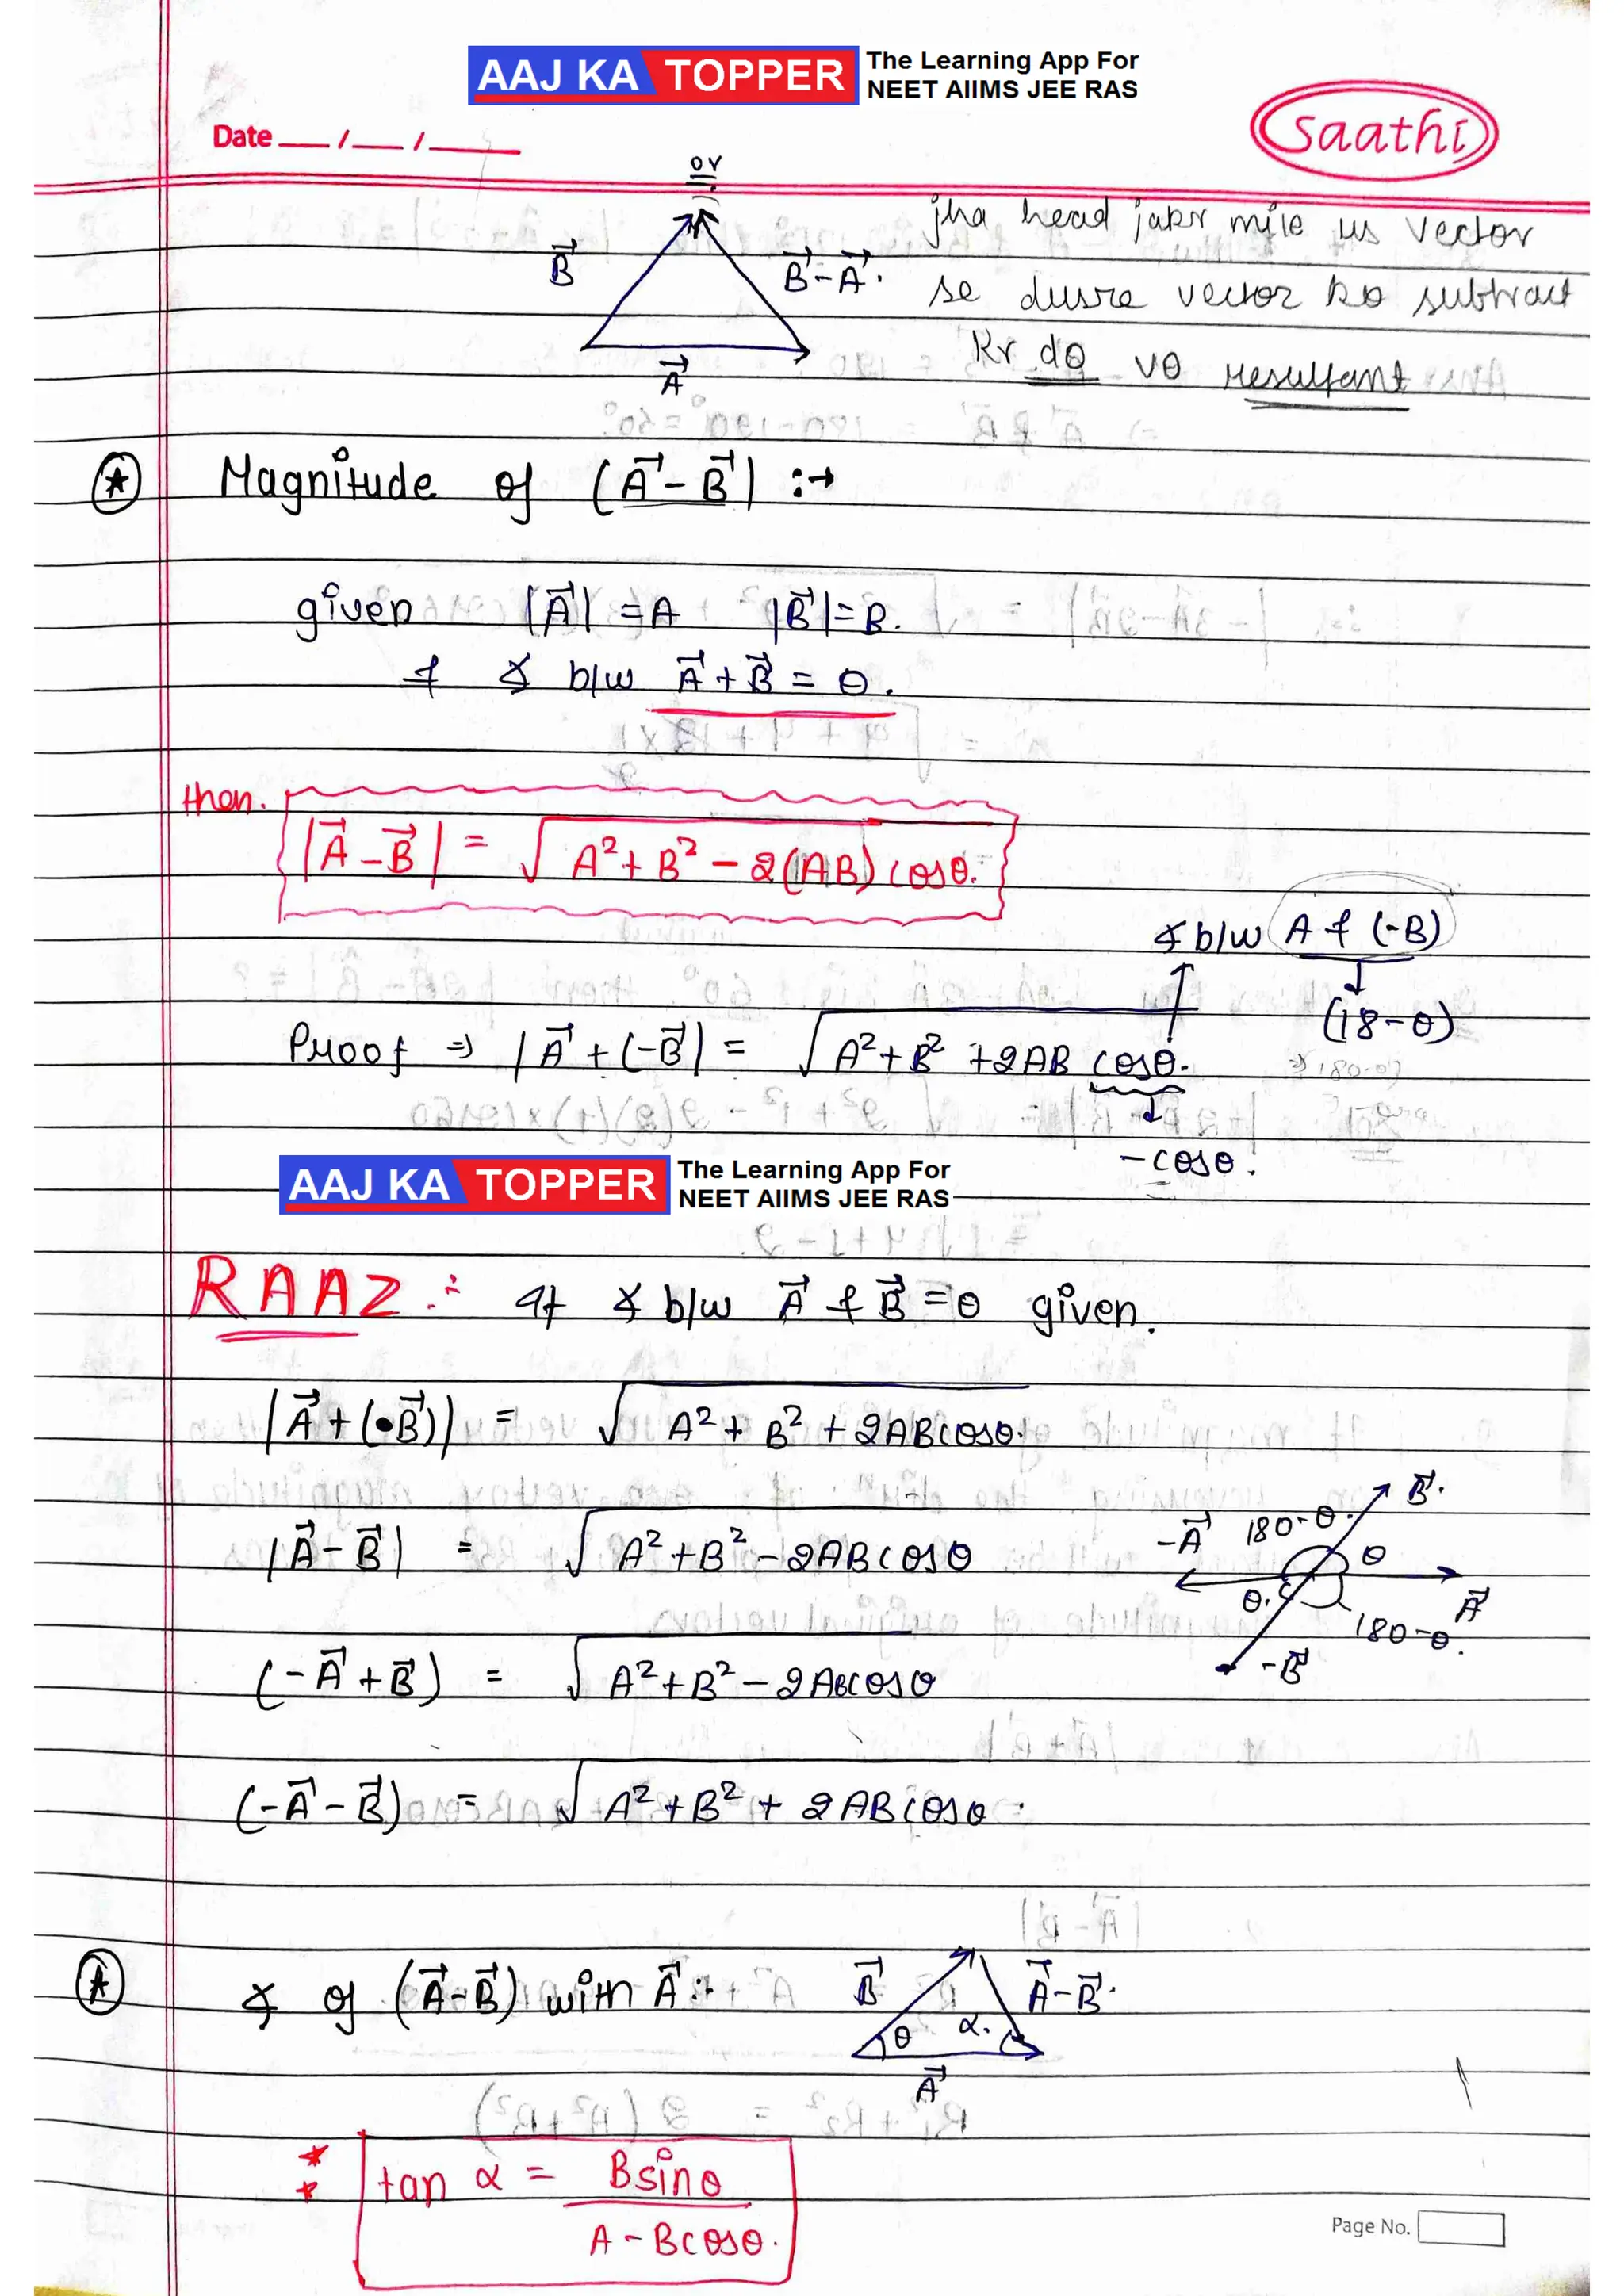 AAJ KA TOPPER The Learning App For
NEET AIIMS JEE RAS
Saathi
Date ___/___/_____
or
jha head jakr mile us vector
B⃗
B⃗-A⃗.
se dusre vector ko subtract
A⃗
kr do vo resultant
Magnitude of (A⃗ - B⃗| :→
given |A⃗| = A |B⃗| = B.
& ∡ b/w A⃗ + B⃗ = θ.
then.
|A⃗ - B⃗| = √A² + B² - 2(AB) cosθ.
∡ b/w A & (-B)
(18-θ)
Proof ⇒ |A⃗ + (-B⃗)| = √A² + B² + 2AB cosθ.
⇒180-θ
-cosθ.
AAJ KA TOPPER The Learning App For
NEET AIIMS JEE RAS
RAAZ :- If ∡ b/w A⃗ & B⃗ = θ given.
|A⃗ + (•B⃗)| = √A² + B² + 2ABcosθ.
B⃗.
-A⃗ 180-θ.
θ
|A⃗ - B⃗| = √A² + B² - 2ABcosθ
θ.
A⃗
180-θ.
-B⃗
(-A⃗ + B⃗) = √A² + B² - 2ABcosθ
(-A⃗ - B⃗) = √A² + B² + 2ABcosθ.
∡ of (A⃗-B⃗) with A⃗ :-
B⃗
A⃗-B⃗.
θ α.
A⃗
tan α = Bsinθ
A - Bcosθ.
Page No.